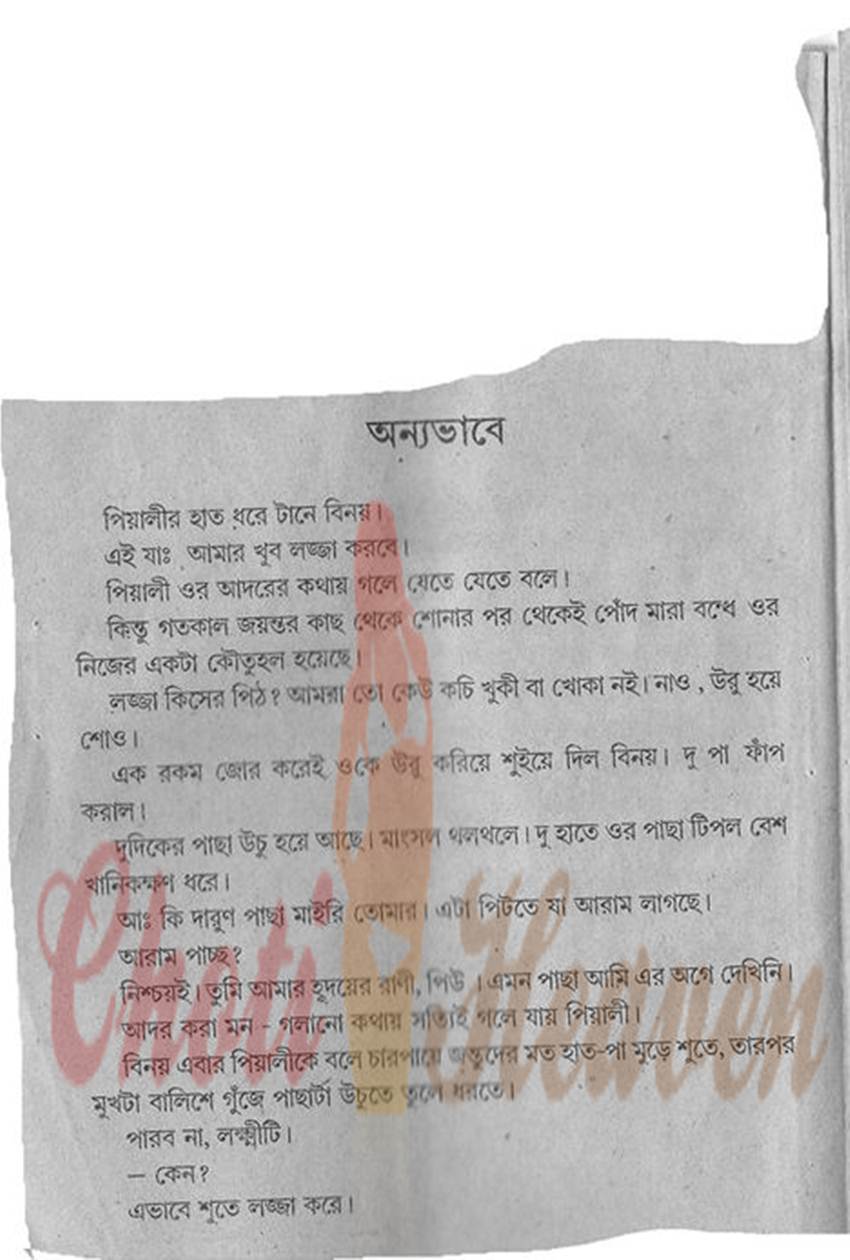 অন্যভাবে
পিয়ালীর হাত ধরে টানে বিনয়।
এই যাঃ আমার খুব লজ্জা করবে।
পিয়ালী ওর আদরের কথায় গলে যেতে যেতে বলে।
কিন্তু গতকাল জয়ন্তর কাছ থেকে শোনার পর থেকেই পোঁদ মারা বন্ধে ওর
নিজের একটা কৌতুহল হয়েছে।
লজ্জা কিসের পিঠ? আমরা তো কেউ কচি খুকী বা খোকা নই। নাও , উবু হয়ে
শোও।
এক রকম জোর করেই ওকে উবু করিয়ে শুইয়ে দিল বিনয়। দু পা ফাঁপ
করাল।
দুদিকের পাছা উচু হয়ে আছে। মাংসল থলথলে। দু হাতে ওর পাছা টিপল বেশ
খানিকক্ষণ ধরে।
আঃ কি দারুণ পাছা মাইরি তোমার। এটা পিটতে যা আরাম লাগছে।
আরাম পাচ্ছ?
নিশ্চয়ই। তুমি আমার হূদয়ের রাণী, পিউ । এমন পাছা আমি এর অগে দেখিনি।
আদর করা মন - গলানো কথায় সত্যিই গলে যায় পিয়ালী।
বিনয় এবার পিয়ালীকে বলে চারপায়ে জন্তুদের মত হাত-পা মুড়ে শুতে, তারপর
মুখটা বালিশে গুঁজে পাছার্টা উচুতে তুলে ধরতে।
পারব না, লক্ষ্মীটি।
– কেন?
এভাবে শুতে লজ্জা করে।
Choti Heaven